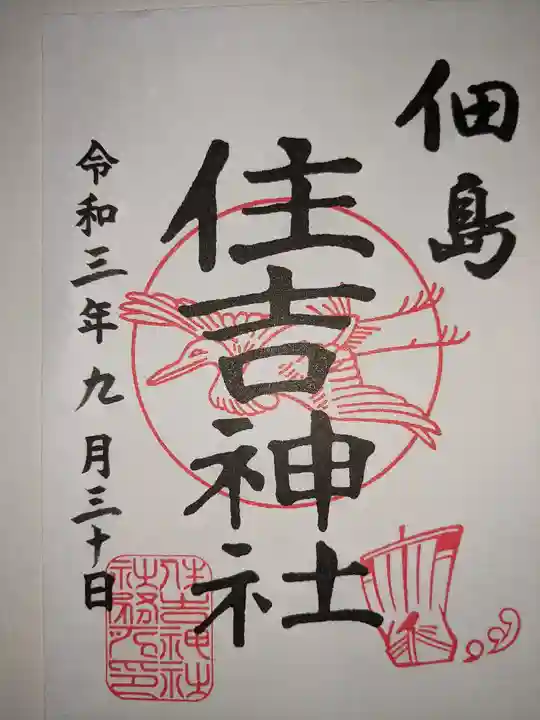 佃島
住吉神社
令和三年九月三十日
住吉神社
社務所印